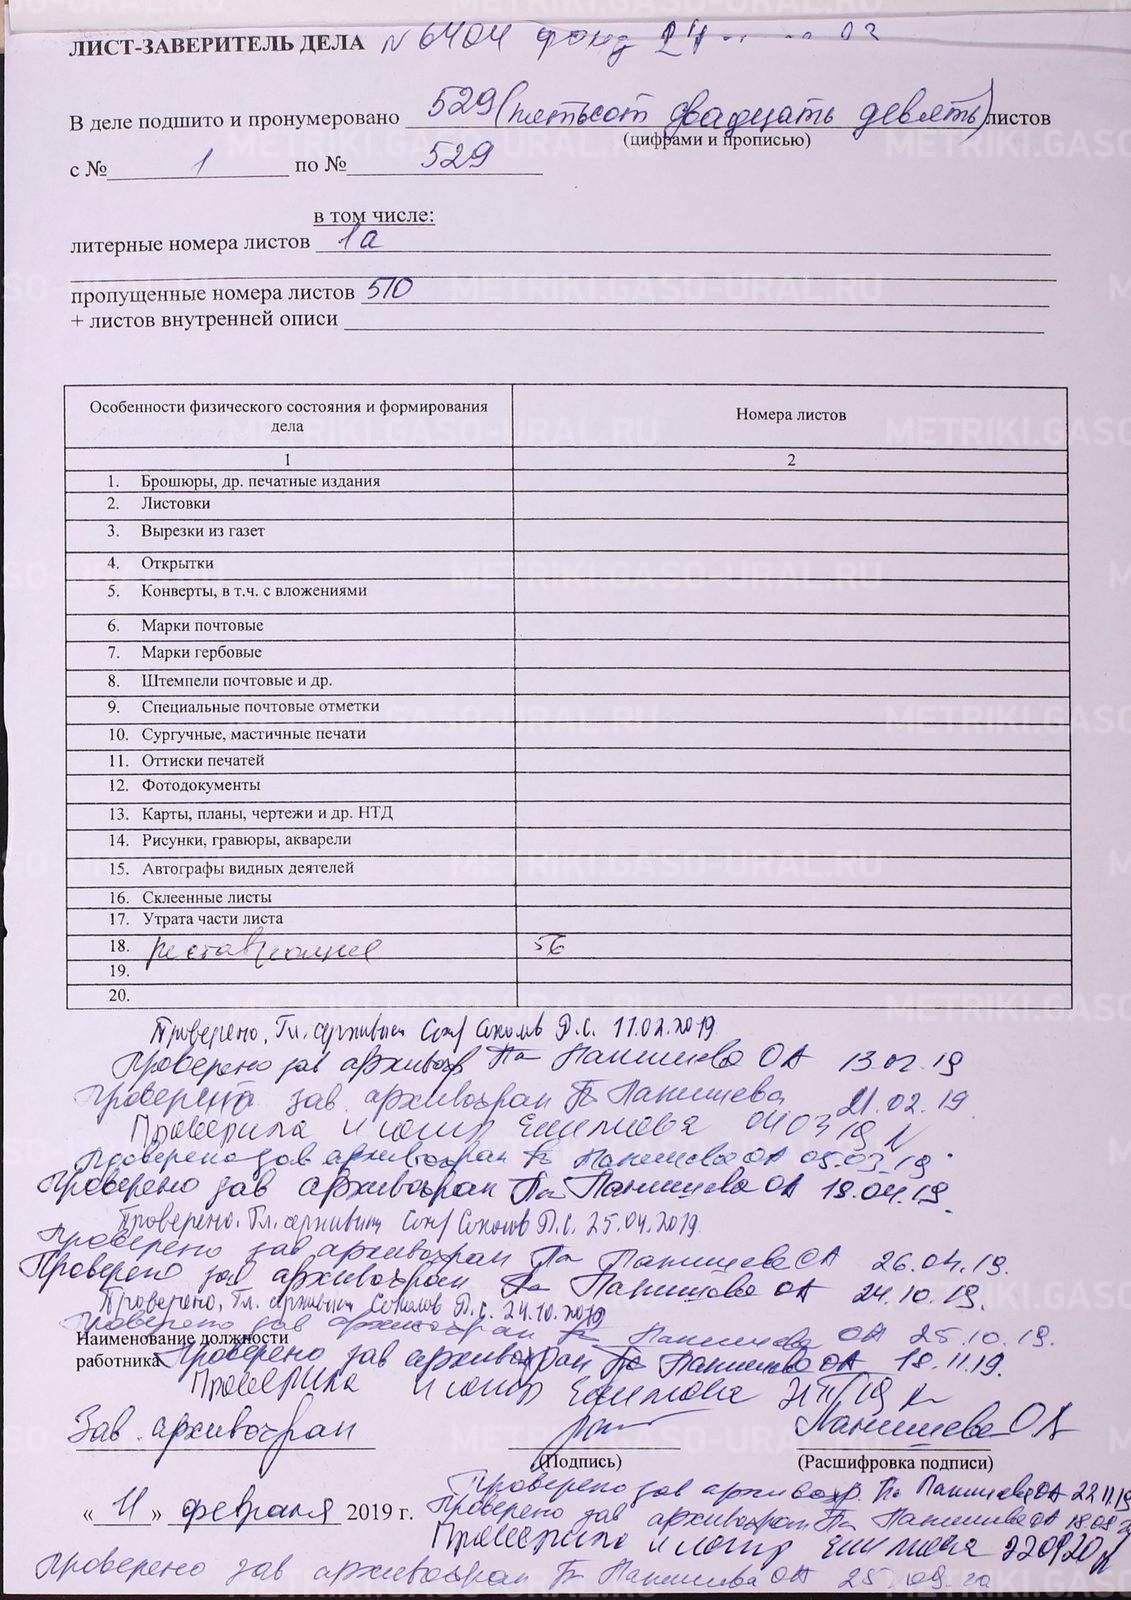 ЛИСТ-ЗАВЕРИТЕЛЬ ДЕЛА N 6404 фонд 24
В деле подшито и пронумеровано 529 (пятьсот двадцать девять) листов
(цифрами и прописью)
с № 1 по № 529
в том числе:
литерные номера листов 1а
пропущенные номера листов 510
+ листов внутренней описи
Особенности физического состояния и формирования дела Номера листов
1 2
1. Брошюры, др. печатные издания
2. Листовки
3. Вырезки из газет
4. Открытки
5. Конверты, в т.ч. с вложениями
6. Марки почтовые
7. Марки гербовые
8. Штемпели почтовые и др.
9. Специальные почтовые отметки
10. Сургучные, мастичные печати
11. Оттиски печатей
12. Фотодокументы
13. Карты, планы, чертежи и др. НТД
14. Рисунки, гравюры, акварели
15. Автографы видных деятелей
16. Склеенные листы
17. Утрата части листа
18. реставрация 56
19.
20.
Проверено. Гл. архивист Соколов Д.С. 11.02.2019
Проверено зав архивохр Панишева ОА 13.02.19
Проверена зав. архивохран Панишева 21.02.19
Проверила 04 03 19
Проверено зав архивохран Панишева ОА 05.03.19
Проверено зав архивохран Панишева ОА 19.04.19
Проверено. Гл. архивист Соколов Д.С. 25.04.2019
Проверено зав архивохран Панишева ОА 26.04.19.
Проверено зав архивохран Панишева ОА 24.10.19.
Проверено. Гл. архивист Соколов Д.С. 24.10.2019
Проверено зав архивохран Панишева ОА 25.10.19.
Наименование должности
работника Проверено зав архивохран Панишева ОА 18.11.19.
Проверила
Зав. архивохран Панишева ОА
(Подпись) (Расшифровка подписи)
Проверено зав архивохр. Панишева ОА 22.11.19
« 11 » февраля 2019 г. Проверено зав архивохран Панишева ОА
Проверила 22 09 20
Проверено зав архивохран Панишева ОА 25.09.20
METRIKI.GASO-URAL.RU